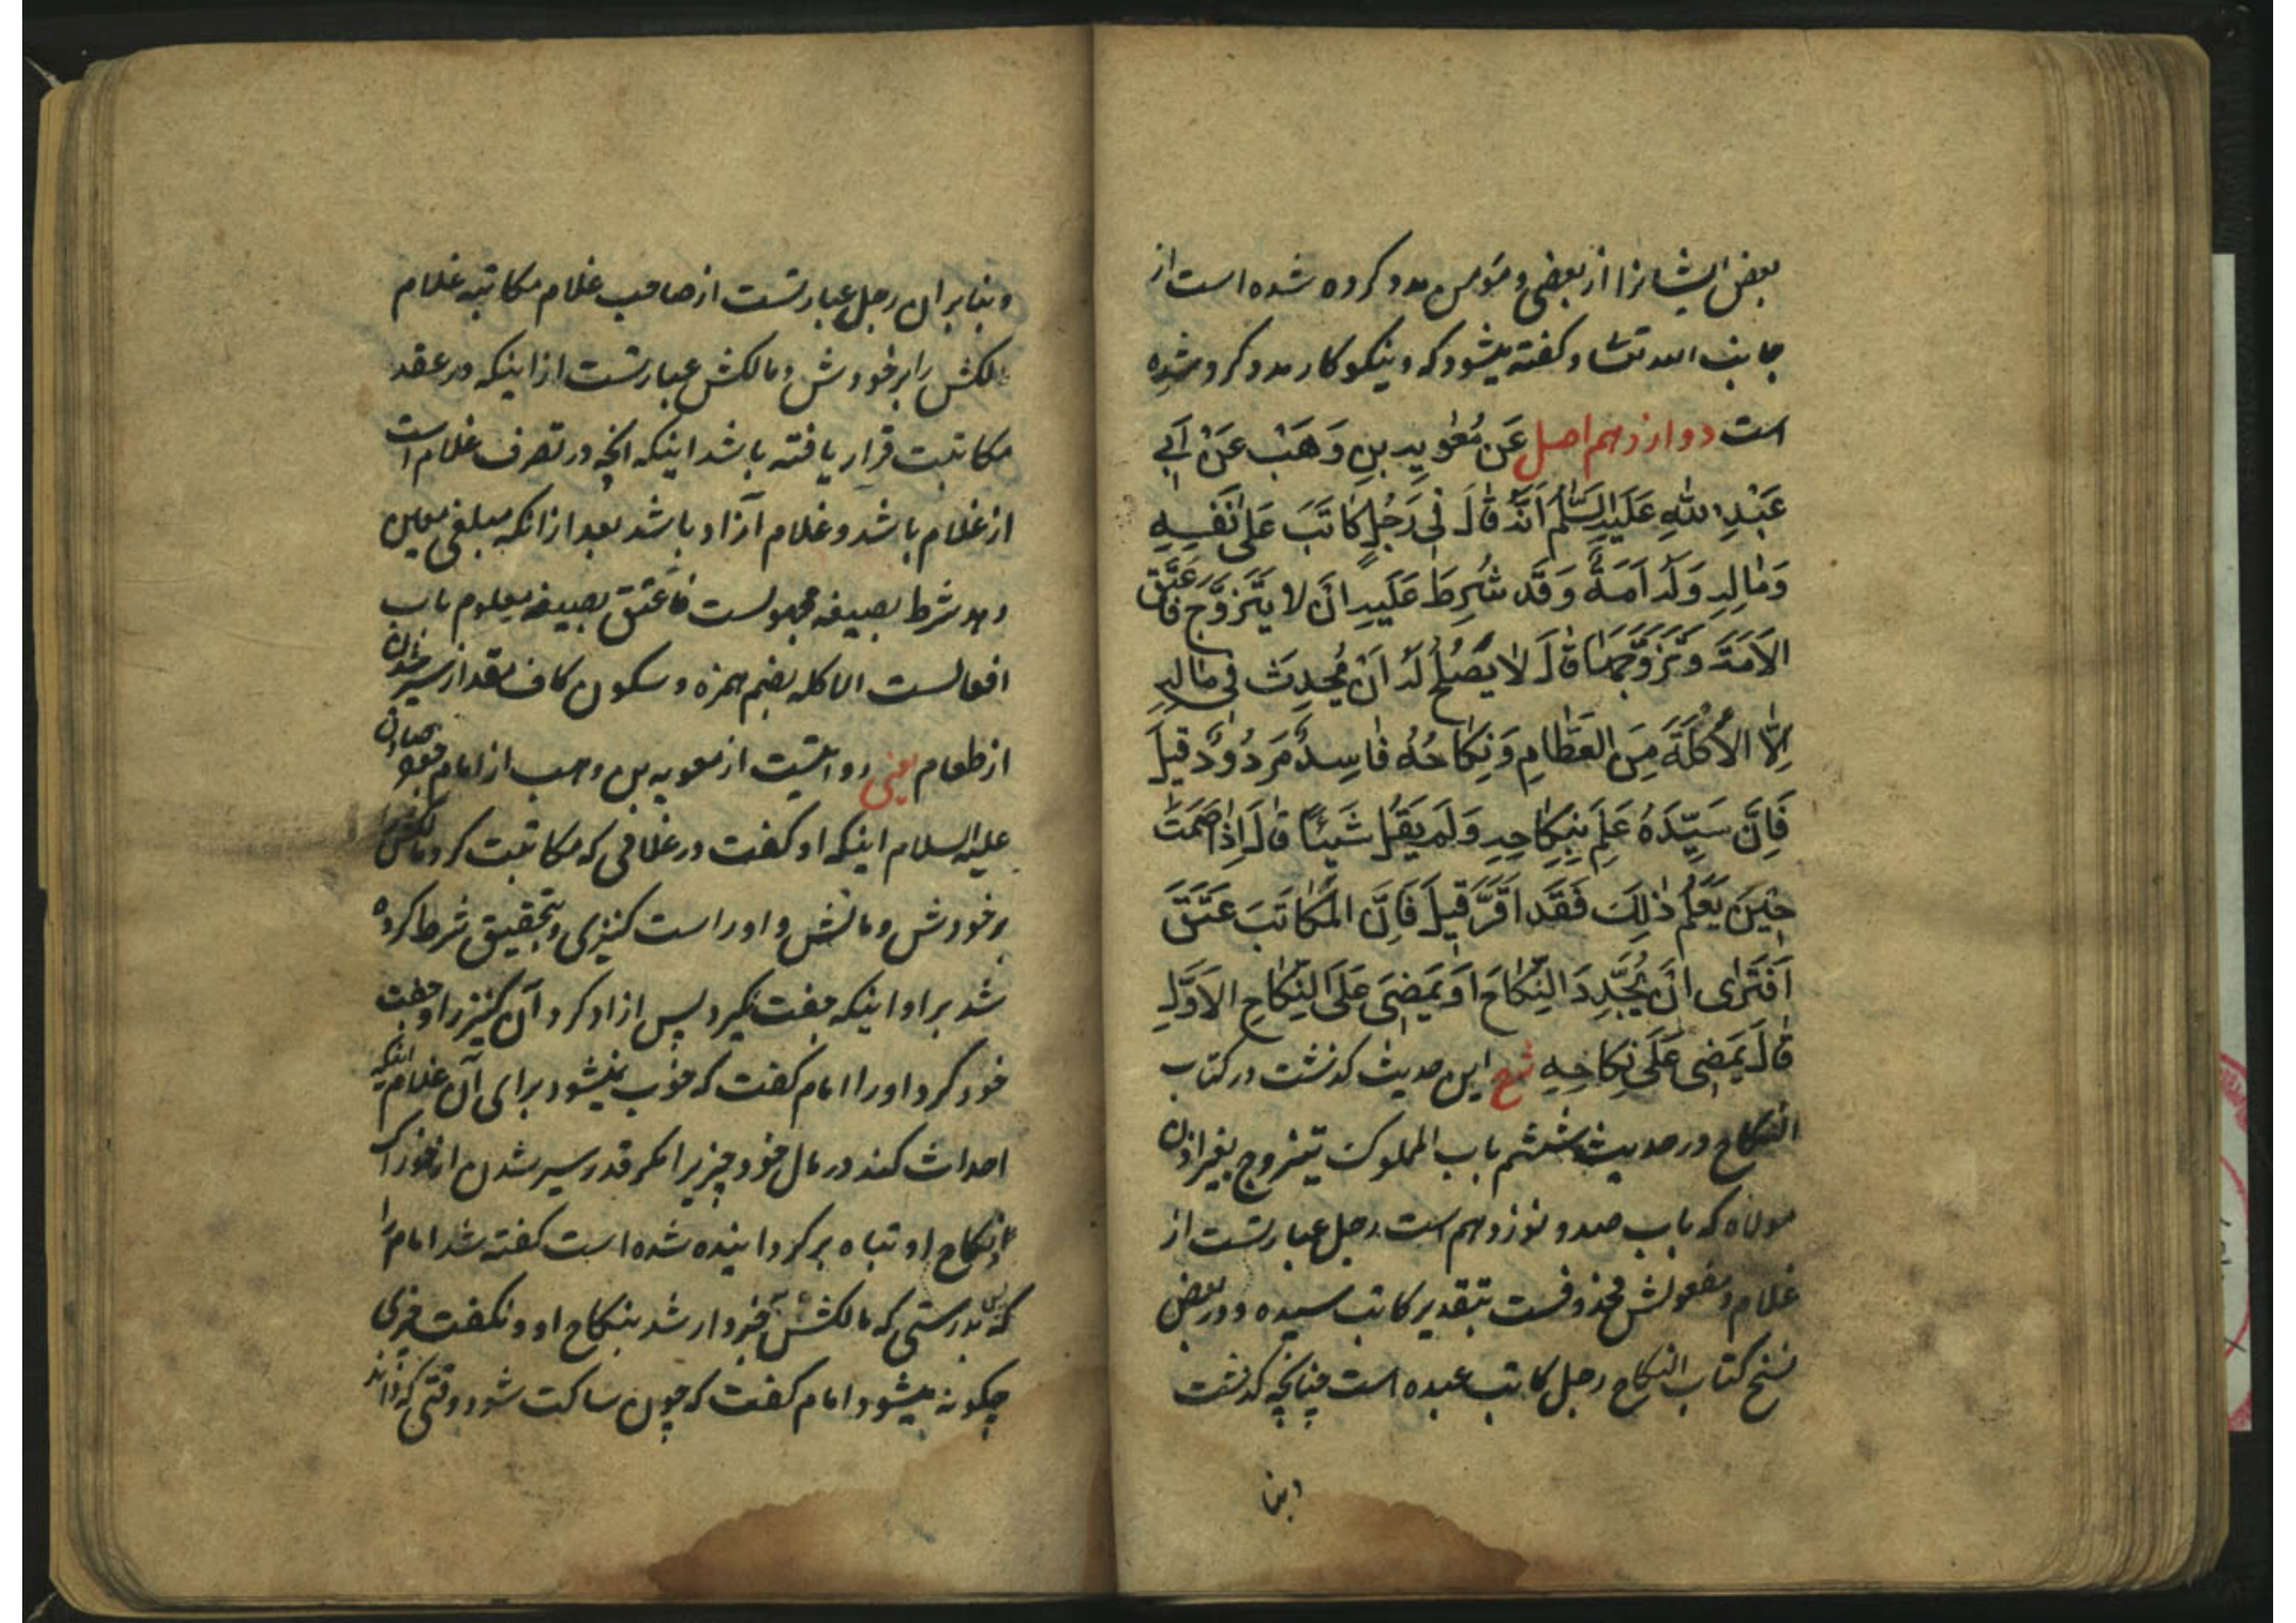 بعض ایشانرا از بعضی و مؤمن مدد کرده شده است از
جانب الله تعالی و گفته میشود که و نیکو کار مدد کرده شده
است دوازدهم اصل عَن مُعٰوِیةِ بنِ وَهَبْ عَنْ اَبی
عَبْدِ اللهِ عَلَیهِ السَّلٰمُ اَنَّهُ قٰالَ فی رَجُلٍ کاتَبَ عَلی نَفسِهِ
وَمٰالِهِ وَلَهُ اَمَةٌ وَقَد شُرِطَ عَلَیهِ اَن لا یَتَزَوَّجَ فَاَعتَقَ
الاَمَةَ وَتَزَوَّجَهٰا قٰالَ لا یَصلُحُ لَهُ اَنْ یُحدِثَ فی مٰالِهِ
اِلّا الاُکلَةَ مِنَ الطَّعامِ وَنِکاحُهُ فٰاسِدٌ مَردُودٌ قیلَ
فَاِنَّ سَیِّدَهُ عَلِمَ بِنِکاحِهِ وَلَم یَقُل شَیئًا قٰالَ اِذٰا صَمَتَ
حینَ یَعلَمُ ذٰلِکَ فَقَد اَقَرَّ قیلَ فَاِنَّ المُکٰاتَبَ عَتَقَ
اَفَتَری اَن یُجَدِّدَ النِّکاحَ اَو یَمضِیَ عَلَی النِّکاحِ الاَوَّلِ
قٰالَ یَمضی عَلَی نِکاحِهِ شرح این حدیث گذشت در کتاب
النکاح در حدیث ششم باب المملوک یتزوج بغیر اذن
مولاه که باب صد و نوزدهم است رجل عبارتست از
غلام و مفعولش محذوفست بتقدیر کاتب سیده و در بعض
نسخ کتاب النکاح رجل کاتب عبده است چنانچه گذشت
وبنا
وبنا بر ان رجل عبارتست از صاحب غلام مکاتبه غلام
مالکش را بر خودش و مالکش عبارتست از اینکه در عقد
مکاتبت قرار یافته باشد اینکه انچه در تصرف غلام است
از غلام باشد و غلام آزاد باشد بعد از انکه مبلغی معین
دهد شرط بصیغه مجهولست فاعتق بصیغه معلوم باب
افعالست الاکله بضم همزه و سکون کاف بقدر سیر شدن
از طعام یعنی روایتست از معویه بن وهب از امام جعفر صادق
علیه السلام اینکه او گفت در غلامی که مکاتبت کرد مالکش را
بر خودش و مالش و او راست کنیزی و بتحقیق شرط کرده
شد بر او اینکه جفت نگیرد پس ازاد کرد آن کنیز را و جفت
خود کرد او را امام گفت که خوب نمیشود برای آن غلام اینکه
احداث کند در مال خود چیزیرا مگر قدر سیر شدن از خوراک
و نکاح او تباه برگردانیده شده است گفته شد امام را
که پس بدرستی که مالکش خبردار شد بنکاح او و نگفت چیزی
چگونه میشود امام گفت که چون ساکت شود وقتی که داند